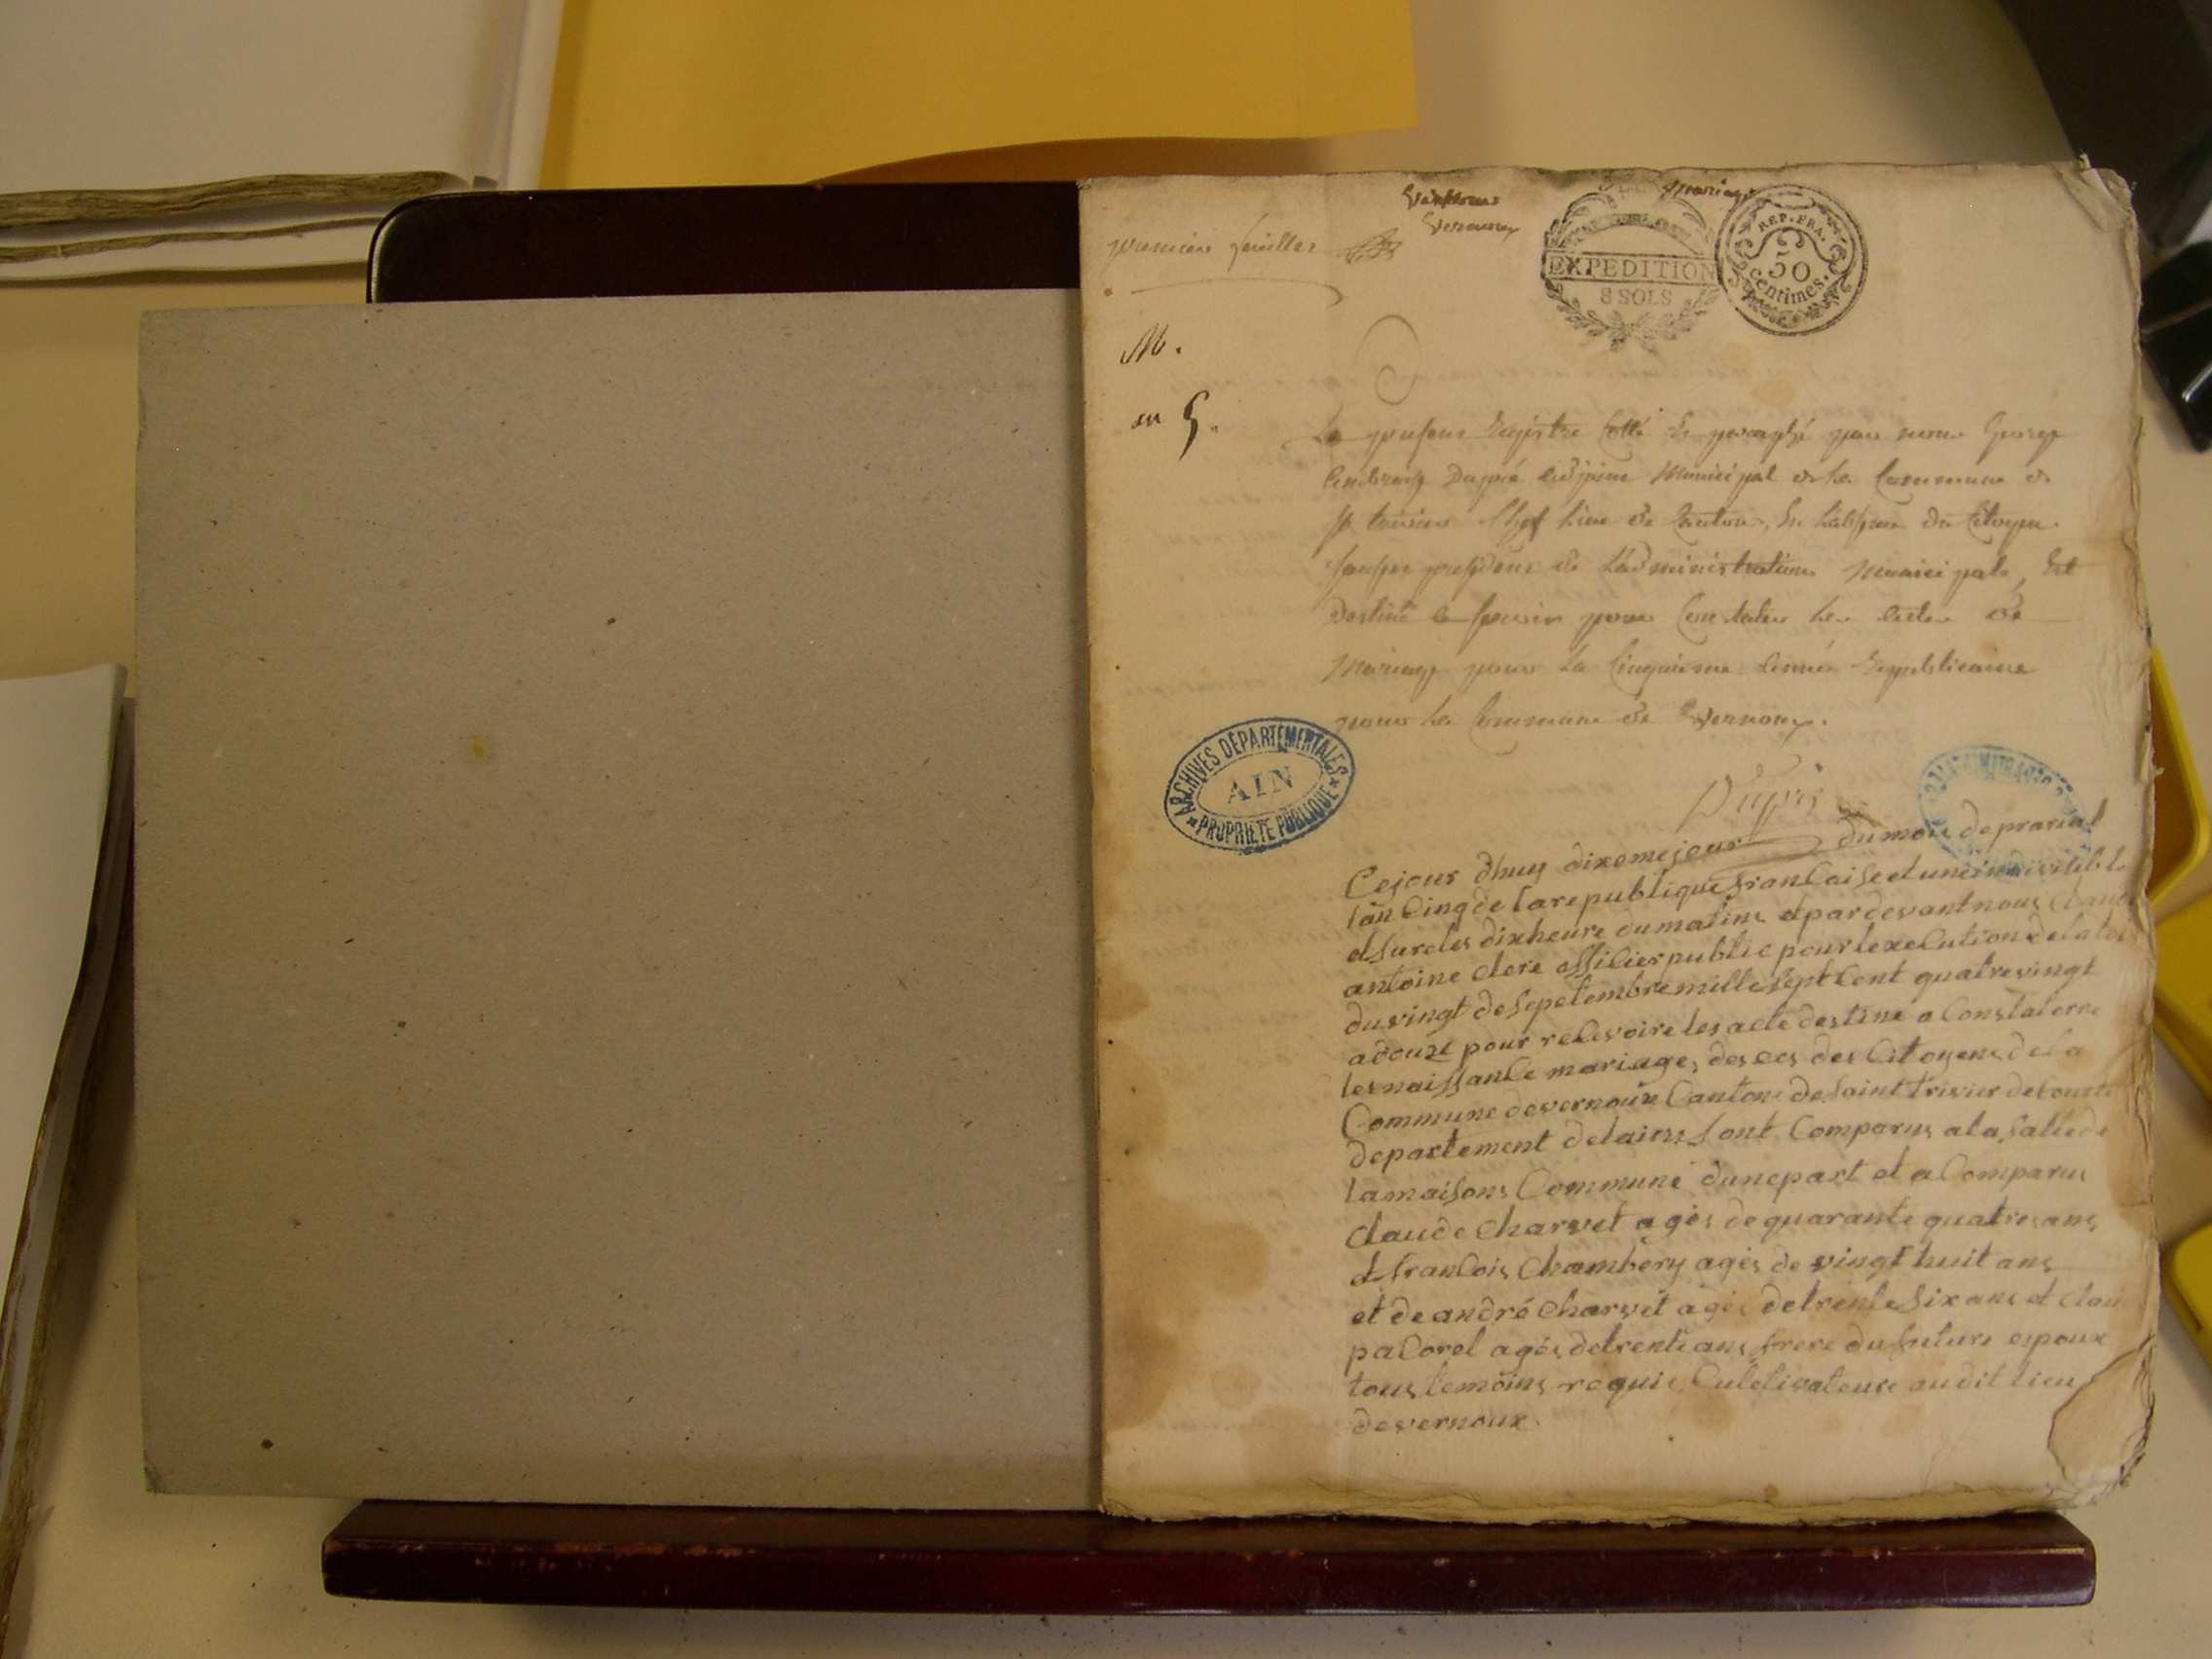 premier feuillet
Vernoux
mariage
EXPEDITION
8 SOLS
REP. FRA.
50
centimes.
M.
an 5.
Le present Registre Cotté Et paraphé par nous George
Dupré adjoint Municipal de la Commune de
St trivier Chef lieu de Canton, En L'absence du Citoyen
president de L'administration Municipale, Est
Destiné a servir pour Constater les actes de
Mariage pour La Cinquieme année Republicaine
pour la Commune de Vernoux.
ARCHIVES DÉPARTEMENTALES
AIN
PROPRIÉTÉ PUBLIQUE
Dupré
Cejour dhuy dixeme jour du mois de prarial
lan Cinq de la republique francaise et une indivisible
et sur les dix heure du matins et par devant nous
antoine clere officier public pour lexecution de la loi
du vingt de sepetembre mille sept Cent quatre vingt
adouze pour recevoire les acte destine a Constaterre
les naissance mariages deces des Citoyens de la
Commune de vernoux Canton de saint trivier de
departement de lains sont Comparus a la salle de
la maisons Commune dune part et a Comparus
claude Charvet ages de quarante quatres ans
et francois Chambery ages de vingt huit ans
et de andré Charvet ages de trente six ans et
pa Corel ages de trente ans frere du future espoux
tous temoins requis Culetivateure audit lieu
de vernoux